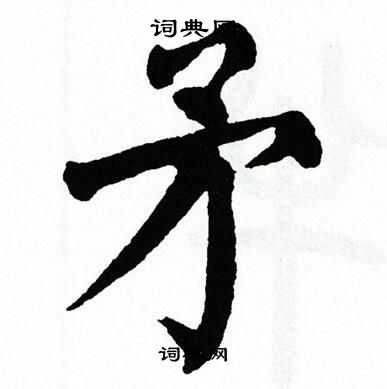 词典网
矛
词典网